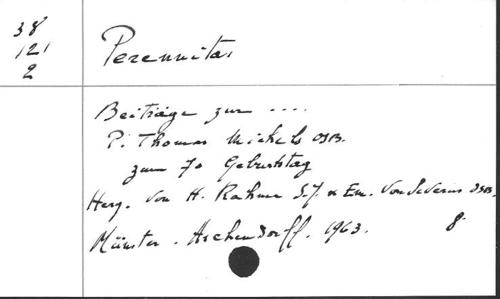 38
121
2
Perennitas
Beiträge zur ....
P. Thomas Michels OSB.
zum 70 Geburtstag
Herg. von H. Rahner S.J. u Em. von Severus OSB.
Münster. Aschendorff. 1963. 8.